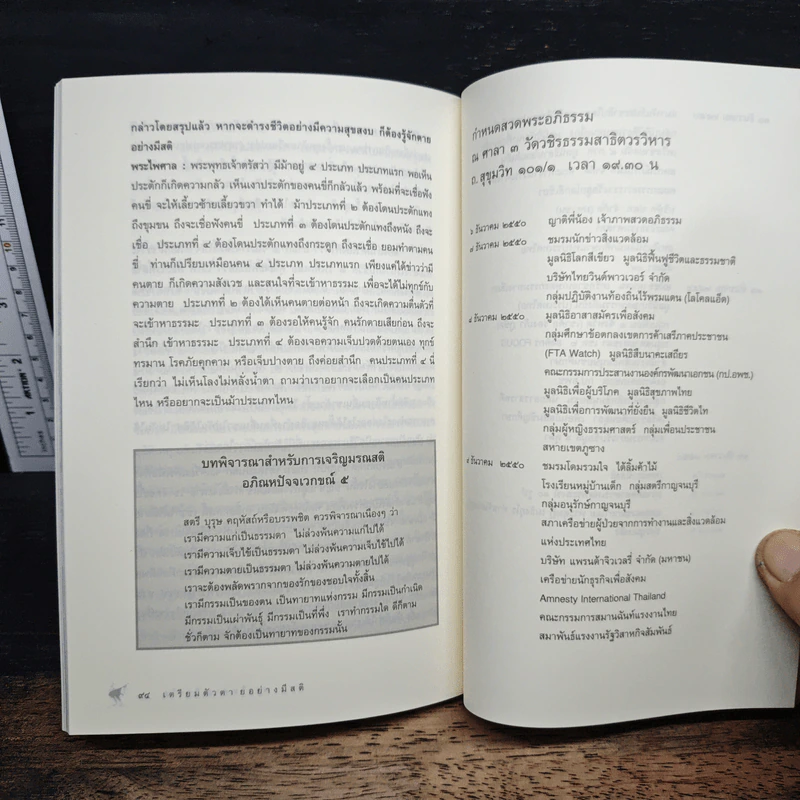 กล่าวโดยสรุปแล้ว หากจะดำรงชีวิตอย่างมีความสุขสงบ ก็ต้องรู้จักตาย
อย่างมีสติ
พระไพศาล : พระพุทธเจ้าตรัสว่า มีม้าอยู่ ๔ ประเภท ประเภทแรก พอเห็น
ประตักก็เกิดความกลัว เห็นเงาประตักของคนขี่ก็กลัวแล้ว พร้อมที่จะเชื่อฟัง
คนขี่ จะให้เลี้ยวซ้ายเลี้ยวขวา ทำได้ ม้าประเภทที่ ๒ ต้องโดนประตักแทง
ถึงขุมขน ถึงจะเชื่อฟังคนขี่ ประเภทที่ ๓ ต้องโดนประตักแทงถึงหนัง ถึงจะ
เชื่อ ประเภทที่ ๔ ต้องโดนประตักแทงถึงกระดูก ถึงจะเชื่อ ยอมทำตามคน
ขี่ ท่านก็เปรียบเหมือนคน ๔ ประเภท ประเภทแรก เพียงแค่ได้ข่าวว่ามี
คนตาย ก็เกิดความสังเวช และสนใจที่จะเข้าหาธรรมะ เพื่อจะได้ไม่ทุกข์กับ
ความตาย ประเภทที่ ๒ ต้องได้เห็นคนตายต่อหน้า ถึงจะเกิดความตื่นตัวที่
จะเข้าหาธรรมะ ประเภทที่ ๓ ต้องรอให้คนรู้จัก คนรักตายเสียก่อน ถึงจะ
สำนึก เข้าหาธรรมะ ประเภทที่ ๔ ต้องเจอความเจ็บปวดด้วยตนเอง ทุกข์
ทรมาน โรคภัยคุกคาม หรือเจ็บปางตาย ถึงค่อยสำนึก คนประเภทที่ ๔ นี่
เรียกว่า ไม่เห็นโลงไม่หลั่งน้ำตา ถามว่าเราอยากจะเลือกเป็นคนประเภท
ไหน หรืออยากจะเป็นม้าประเภทไหน
บทพิจารณาสำหรับการเจริญมรณสติ
อภิณหปัจจเวกขณ์ ๕
สตรี บุรุษ คฤหัสถ์หรือบรรพชิต ควรพิจารณาเนืองๆ ว่า
เรามีความแก่เป็นธรรมดา ไม่ล่วงพ้นความแก่ไปได้
เรามีความเจ็บไข้เป็นธรรมดา ไม่ล่วงพ้นความเจ็บไข้ไปได้
เรามีความตายเป็นธรรมดา ไม่ล่วงพ้นความตายไปได้
เราจะต้องพลัดพรากจากของรักของชอบใจทั้งสิ้น
เรามีกรรมเป็นของตน เป็นทายาทแห่งกรรม มีกรรมเป็นกำเนิด
มีกรรมเป็นเผ่าพันธุ์ มีกรรมเป็นที่พึ่ง เราทำกรรมใด ดีก็ตาม
ชั่วก็ตาม จักต้องเป็นทายาทของกรรมนั้น
๙๔ เตรียมตัวตายอย่างมีสติ
กำหนดสวดพระอภิธรรม
ณ ศาลา ๓ วัดวชิรธรรมสาธิตวรวิหาร
ถ. สุขุมวิท ๑๐๑/๑ เวลา ๑๙.๓๐ น
๖ ธันวาคม ๒๕๕๐ ญาติพี่น้อง เจ้าภาพสวดอภิธรรม
๗ ธันวาคม ๒๕๕๐ ชมรมนักข่าวสิ่งแวดล้อม
มูลนิธิโลกสีเขียว มูลนิธิฟื้นฟูชีวิตและธรรมชาติ
บริษัทไทยวินด์พาวเวอร์ จำกัด
กลุ่มปฏิบัติงานท้องถิ่นไร้พรมแดน (โลโคลแอ็ค)
๘ ธันวาคม ๒๕๕๐ มูลนิธิอาสาสมัครเพื่อสังคม
กลุ่มศึกษาข้อตกลงเขตการค้าเสรีภาคประชาชน
(FTA Watch) มูลนิธิสืบนาคะเสถียร
คณะกรรมการประสานงานองค์กรพัฒนาเอกชน (กป.อพช.)
มูลนิธิเพื่อผู้บริโภค มูลนิธิสุขภาพไทย
มูลนิธิเพื่อการพัฒนาที่ยั่งยืน มูลนิธิชีวิตไท
กลุ่มผู้หญิงธรรมศาสตร์ กลุ่มเพื่อนประชาชน
สหายเขตภูซาง
๙ ธันวาคม ๒๕๕๐ ชมรมโดมรวมใจ ใต้ลิ้มค้าไม้
โรงเรียนหมู่บ้านเด็ก กลุ่มสตรีกาญจนบุรี
กลุ่มอนุรักษ์กาญจนบุรี
สภาเครือข่ายผู้ป่วยจากการทำงานและสิ่งแวดล้อม
แห่งประเทศไทย
บริษัท แพรนด้าจิวเวลรี่ จำกัด (มหาชน)
เครือข่ายนักธุรกิจเพื่อสังคม
Amnesty International Thailand
คณะกรรมการสมานฉันท์แรงงานไทย
สมาพันธ์แรงงานรัฐวิสาหกิจสัมพันธ์